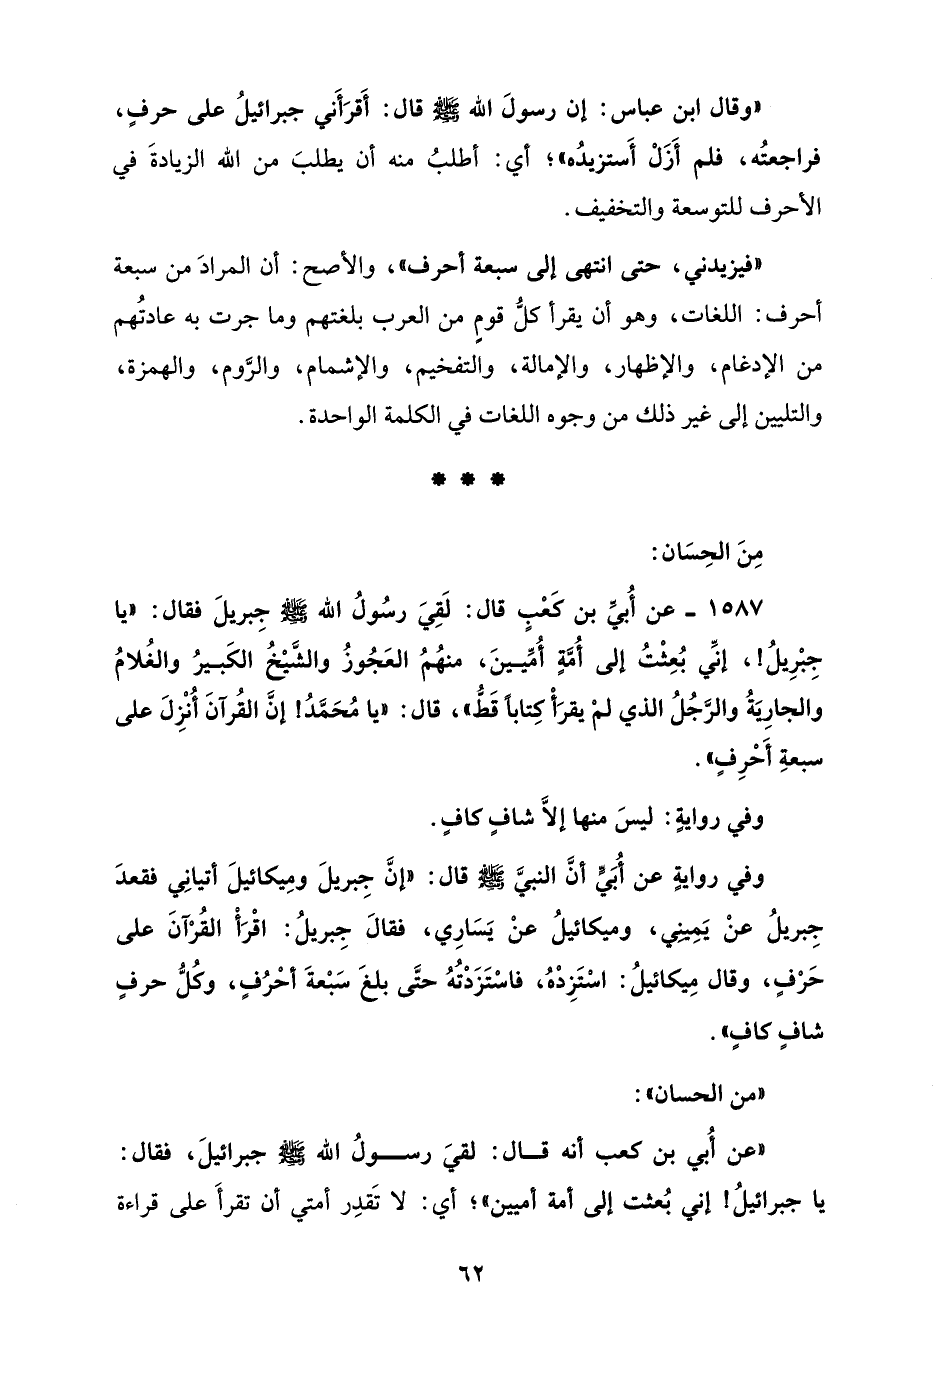 «وقال ابن عباس: إن رسولَ الله ﷺ قال: أَقرَأَني جبرائيلُ على حرفٍ،
فراجعتُه، فلم أَزَلْ أَستزيدُه»؛ أي: أطلبُ منه أن يطلبَ من الله الزيادةَ في
الأحرف للتوسعة والتخفيف.
«فيزيدني، حتى انتهى إلى سبعة أحرف»، والأصح: أن المرادَ من سبعة
أحرف: اللغات، وهو أن يقرأ كلُّ قومٍ من العرب بلغتهم وما جرت به عادتُهم
من الإدغام، والإظهار، والإمالة، والتفخيم، والإشمام، والرَّوم، والهمزة،
والتليين إلى غير ذلك من وجوه اللغات في الكلمة الواحدة.
* * *
مِنَ الحِسَان:
١٥٨٧ - عن أُبيِّ بن كَعْبٍ قال: لَقِيَ رسُولُ الله ﷺ جِبريلَ فقال: «يا
جِبْرِيلُ!، إنِّي بُعِثْتُ إلى أُمَّةٍ أُمِّيـينَ، منهُمُ العَجُوزُ والشَّيْخُ الكَبـيرُ والغُلامُ
والجارِيَةُ والرَّجُلُ الذي لمْ يقرَأْ كِتاباً قَطُّ»، قال: «يا مُحَمَّدُ! إنَّ القُرآنَ أُنْزِلَ على
سبعةِ أَحْرِفٍ».
وفي روايةٍ: ليسَ منها إلاَّ شافٍ كافٍ.
وفي روايةٍ عن أُبَيٍّ أنَّ النبيَّ ﷺ قال: «إنَّ جِبريلَ ومِيكائيلَ أتياني فقعدَ
جِبريلُ عنْ يَمِينِي، وميكائيلُ عنْ يَسَارِي، فقالَ جِبريلُ: اقْرَأْ القُرْآنَ على
حَرْفٍ، وقال مِيكائيلُ: اسْتَزِدْهُ، فاسْتَزَدْتُهُ حتَّى بلغَ سَبْعةَ أحْرُفٍ، وكُلُّ حرفٍ
شافٍ كافٍ».
«من الحسان»:
«عن أُبي بن كعب أنه قـال: لقيَ رسـولُ الله ﷺ جبرائيلَ، فقال:
يا جبرائيلُ! إني بُعثت إلى أمة أميين»؛ أي: لا تَقدِر أمتي أن تقرأَ على قراءة
٦٢